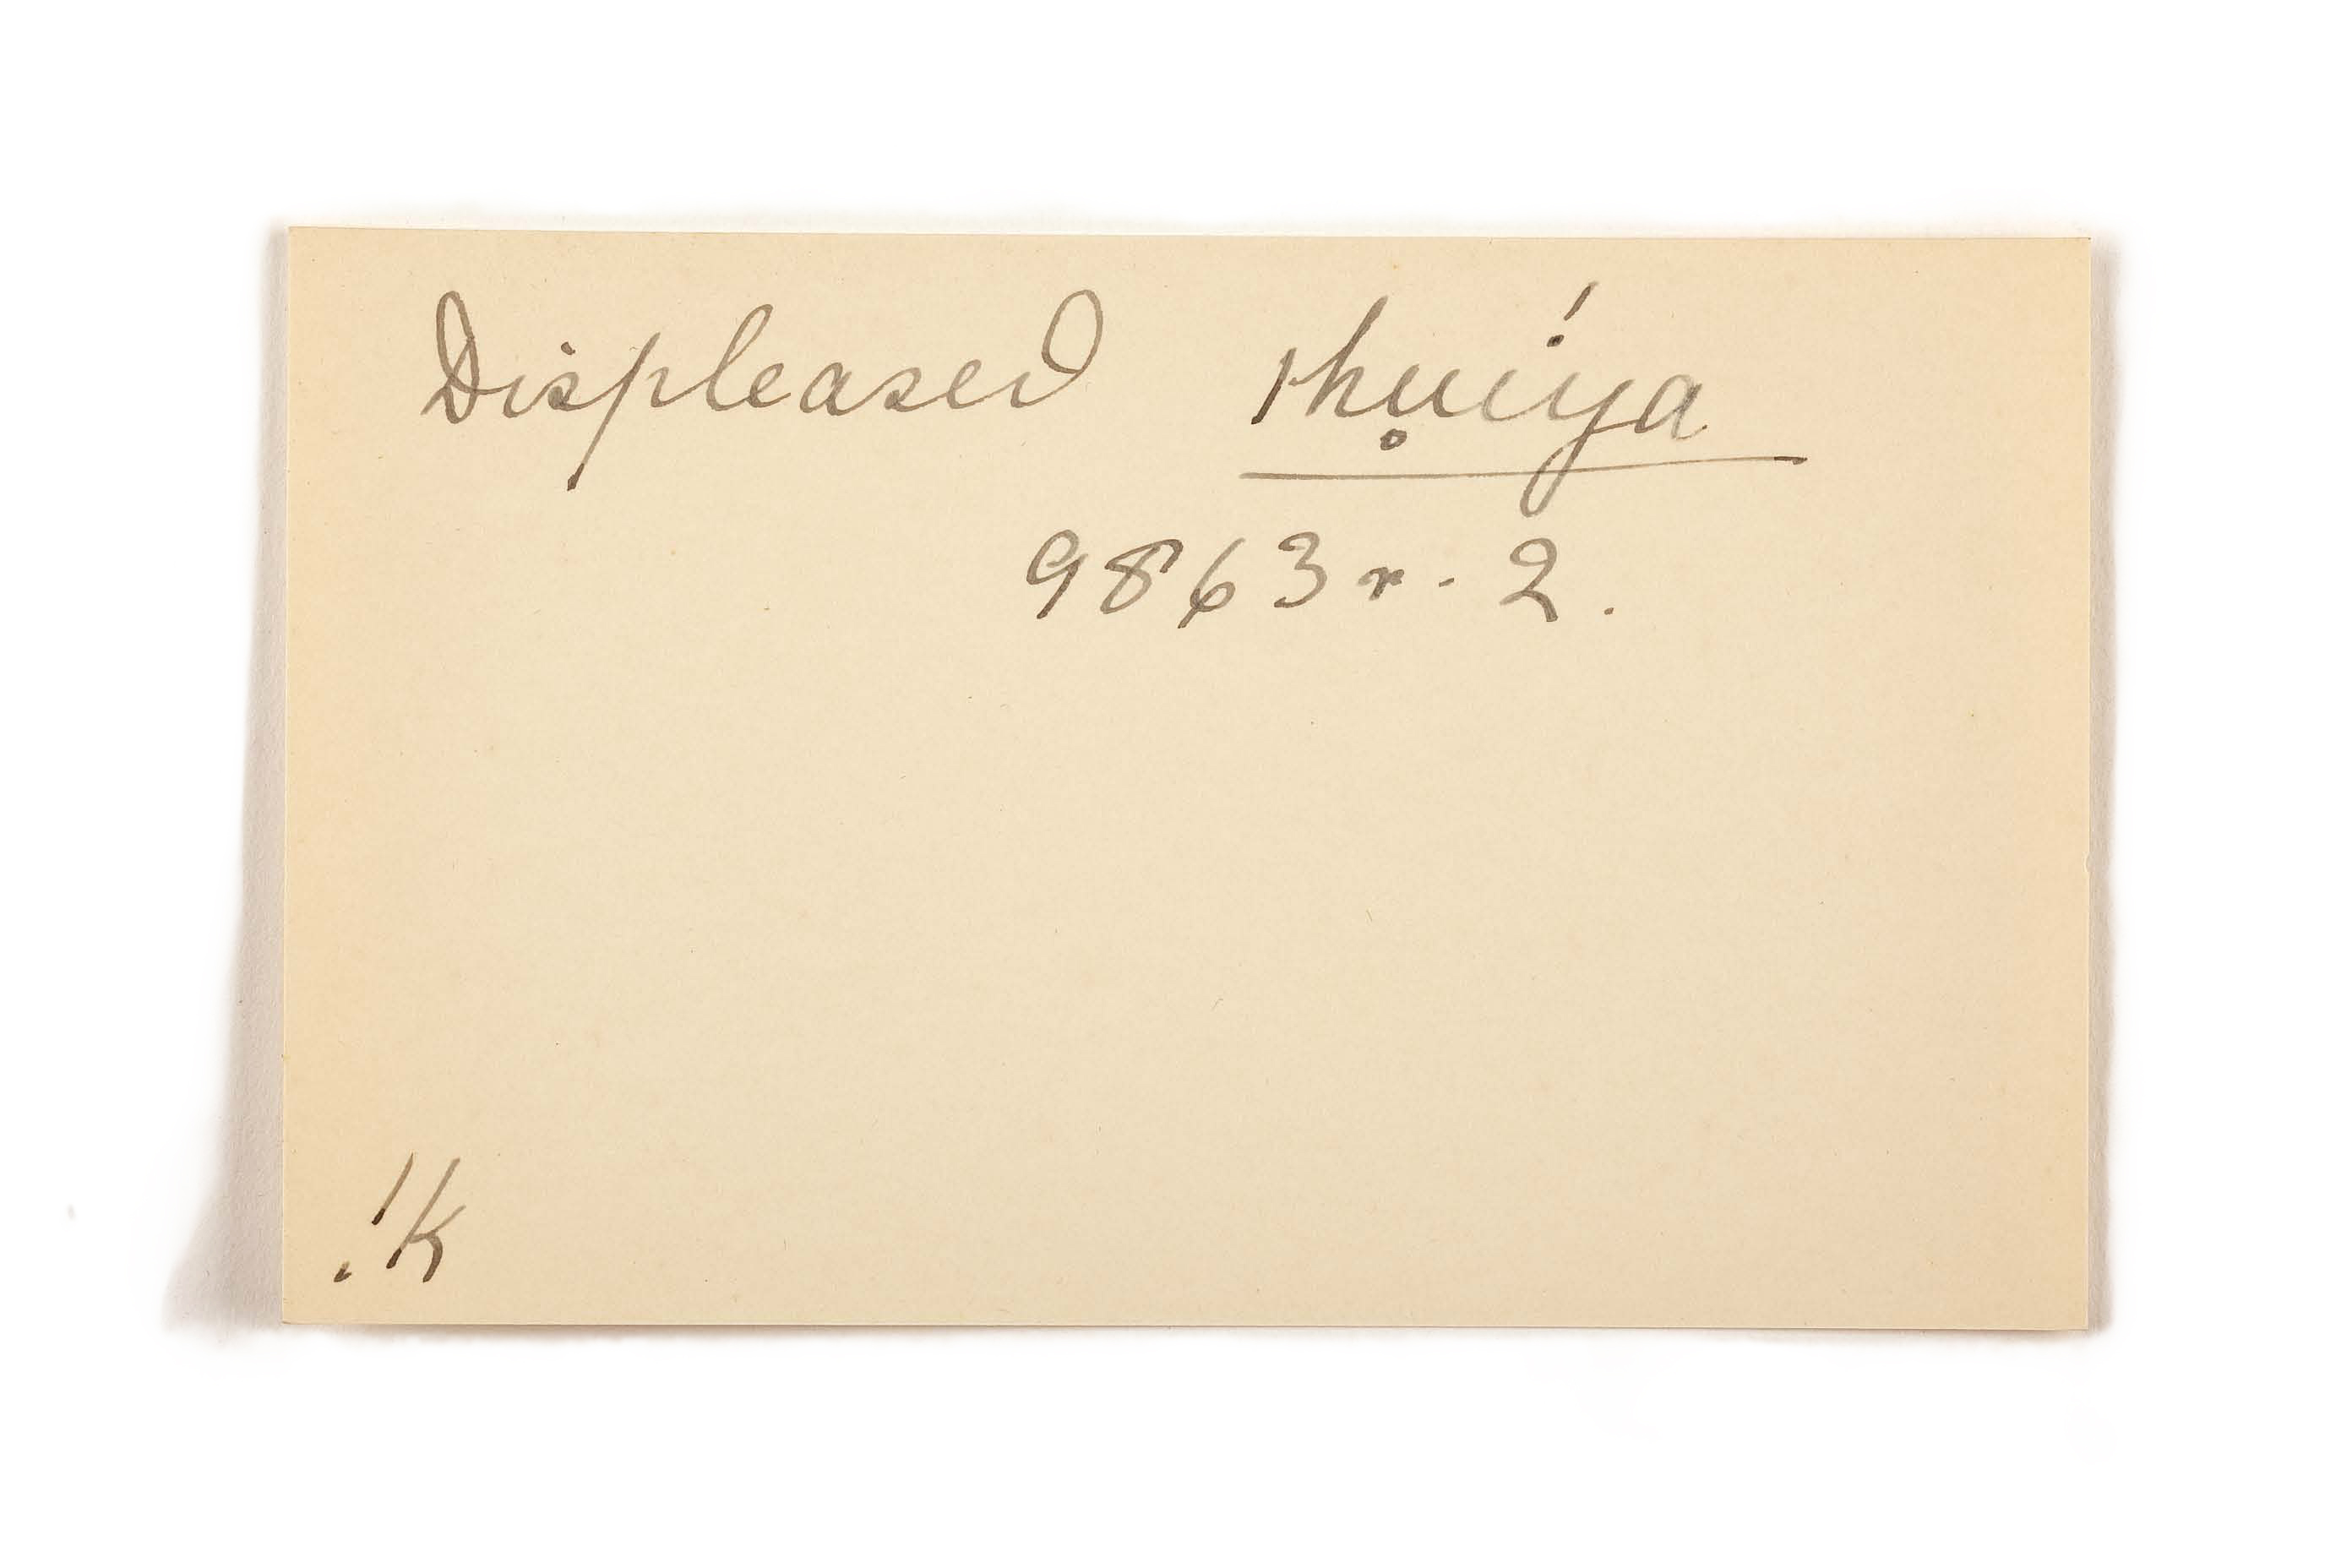 Displeased ǀhu̥íya
9863r.-2.
!k